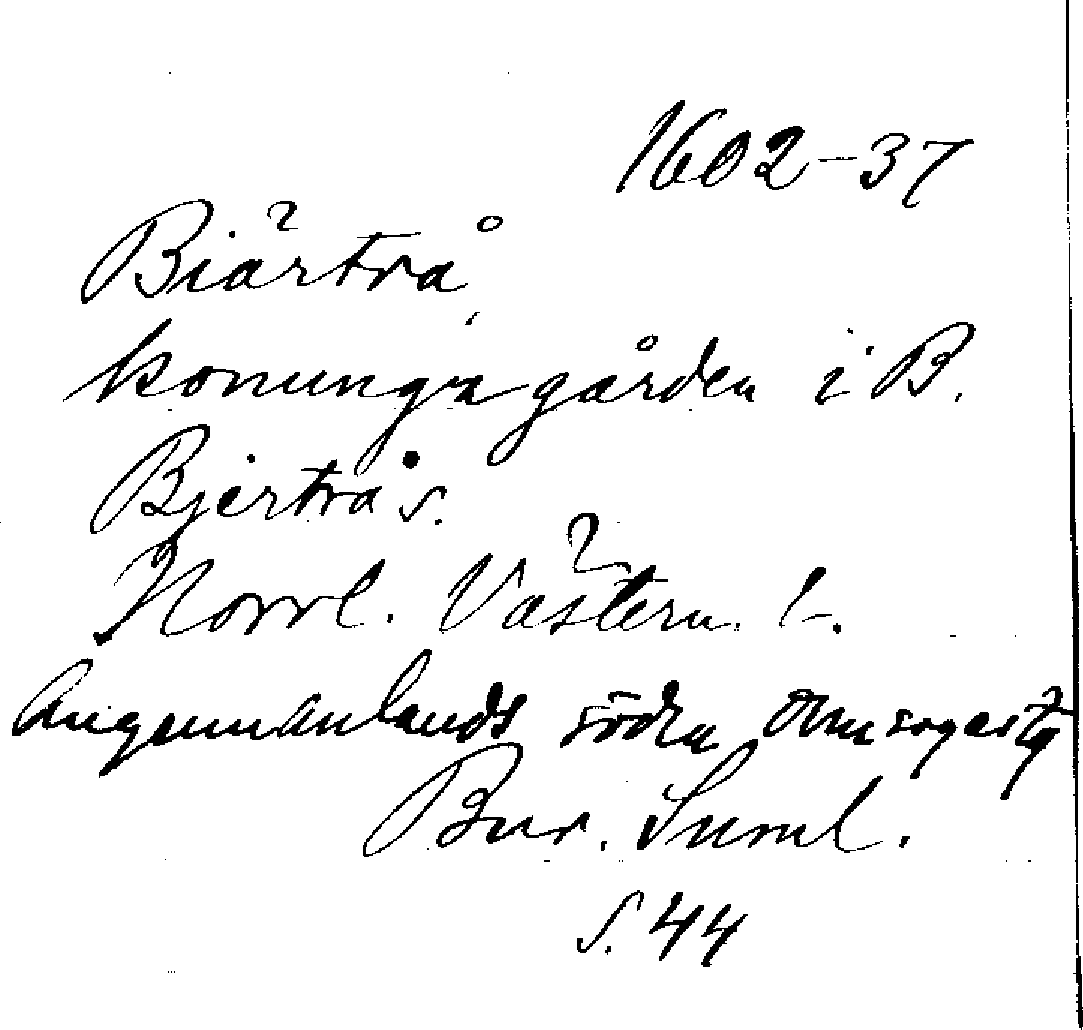 1602-37
Biärtrå,
konungagården i B.
Bjertrå s.
Norrl. Västern. l.
Angermanlands södra domsagas tg
Bur. Suml.
s. 44